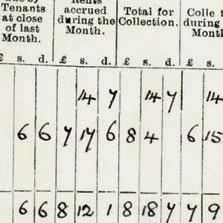 Tenants accrued Total for Colle
at close during the Collection. during
of last Month. Mont
Month.
£ s. d. £ s. d. £ s. d. £ s.
14 7 14 7 14
6 6 7 17 6 8 4 6 15
6 6 8 12 1 8 18 7 7 9